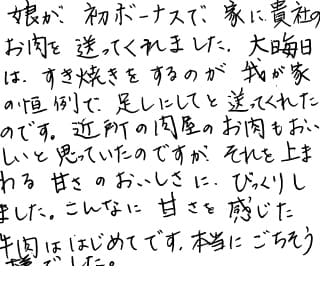 娘が、初ボーナスで、家に貴社の
お肉を送ってくれました。大晦日
は、すき焼きをするのが、我が家
の恒例で、足しにしてと送ってくれた
のです。近所の肉屋のお肉もおい
しいと思っていたのですが、それを上ま
わる甘さのおいしさに、びっくりし
ました。こんなに甘さを感じた
牛肉ははじめてです。本当にごちそう
様でした。